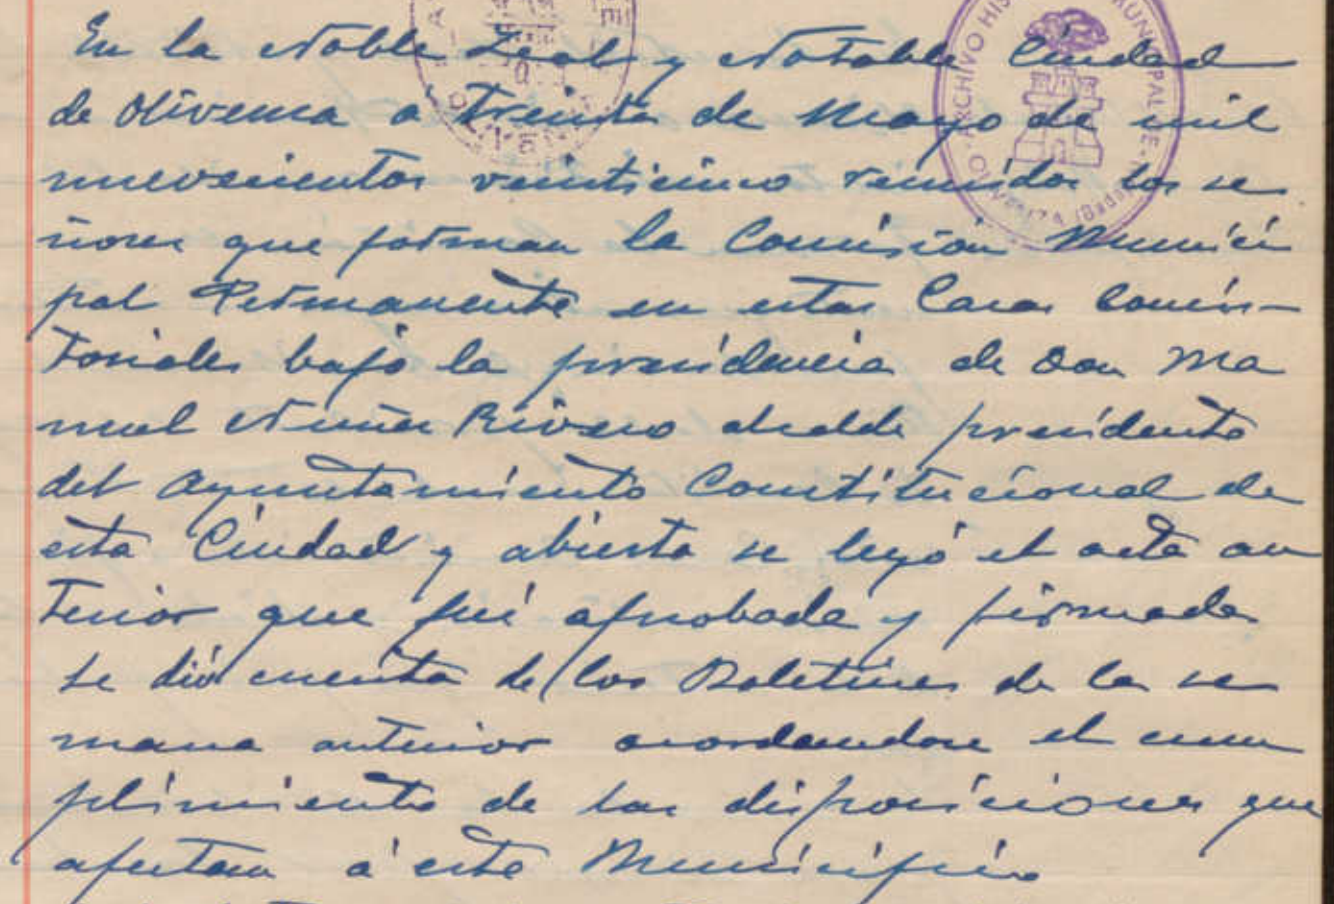 En la Noble Leal y Notable Ciudad
de Olivenza a Treinta de Mayo de mil
nuevecientos veinticinco reunidos los se
ñores que forman la Comisión Munici
pal Permanente en estas Casas Consis-
toriales bajo la presidencia de Don Ma
nuel Nuñez Rivero alcalde presidente
del Ayuntamiento Constitucional de
esta Ciudad y abierta se leyó el acta an
terior que fué aprobada y firmada
se dió cuenta de los Boletines de la se
mana anterior acordandose el cum
plimiento de las disposiciones que
afectan á este Municipio
ARCHIVO HIS MUNICIPAL DE
OLIVENZA (BADAJOZ)